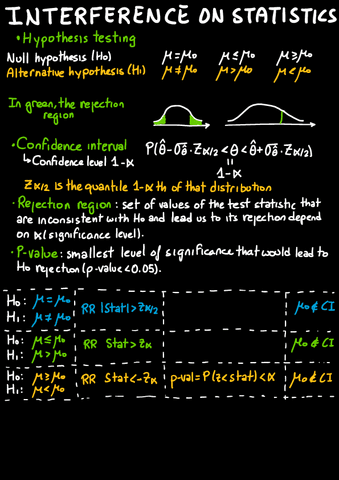 INTERFERENCE ON STATISTICS
• Hypothesis testing
Null hypothesis (H0) μ=μ0 μ≤μ0 μ≥μ0
Alternative hypothesis (H1) μ≠μ0 μ>μ0 μ<μ0
In green, the rejection
region
• Confidence interval P(θ̂-σθ̂·Zα/2<θ<θ̂+σθ̂·Zα/2)
↳ Confidence level 1-α
=
1-α
Zα/2 is the quantile 1-α th of that distribution
• Rejection region: set of values of the test statistic that
are inconsistent with H0 and lead us to its rejection depend
on α (significance level).
• P-value: smallest level of significance that would lead to
H0 rejection (p-value<0.05).
H0: μ=μ0
H1: μ≠μ0
RR |Stat|>Zα/2
μ0∉CI
H0: μ≤μ0
H1: μ>μ0
RR Stat>Zα
μ0∉CI
H0: μ≥μ0
H1: μ<μ0
RR Stat<-Zα
p-val=P(z<stat)<α
μ0∉CI